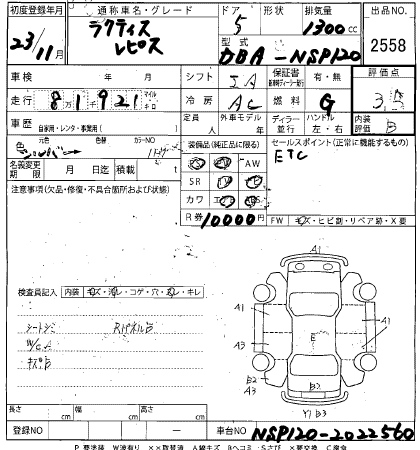 初度登録年月 通称車名・グレード ドア 形状 排気量 出品NO
23/11月 ラクティス レピス 5 1300cc 2558
型式 DBA-NSP120
車検 年 月 シフト IA 保証書 有・無 評価点
走行 81921 マイル キロ 冷房 AC 燃料 G 3.5
車歴 自家用・レンタ・事業用( ) 定員 人 外車モデル 年 ディーラー 並行 ハンドル 左・右 内装評価 B
色 元色 シルバー 色替 カラーNO
名義変更期限 月 日迄 積載 t
装備品(純正品に限る)
AW
SR
カワ
R券 10000円
セールスポイント(正常に機能するもの)
ETC
注意事項(欠品・修復・不具合箇所および状態)
FW キズ・ヒビ割・リペア跡・X要
検査員記入 内装 キズ・汚レ・コゲ・穴・スレ・キレ
シートシミ RパネルB
W/CA
キズB
A1
A1 A1
A3 E A3
B2 A3 B2
Y1 B3
長さ cm 幅 cm 高さ cm
登録NO — 車台NO NSP120-2022560
P 要塗装 W波有り ××取替済 A線キズ Bヘコミ Sさび ×要交換 C腐食